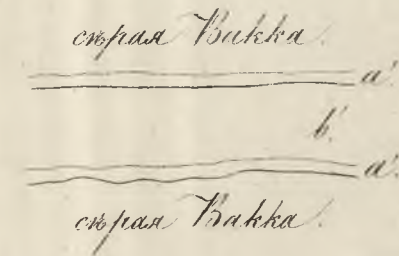 сѣрая Вакка.
a'.
b'.
a'.
сѣрая Вакка.